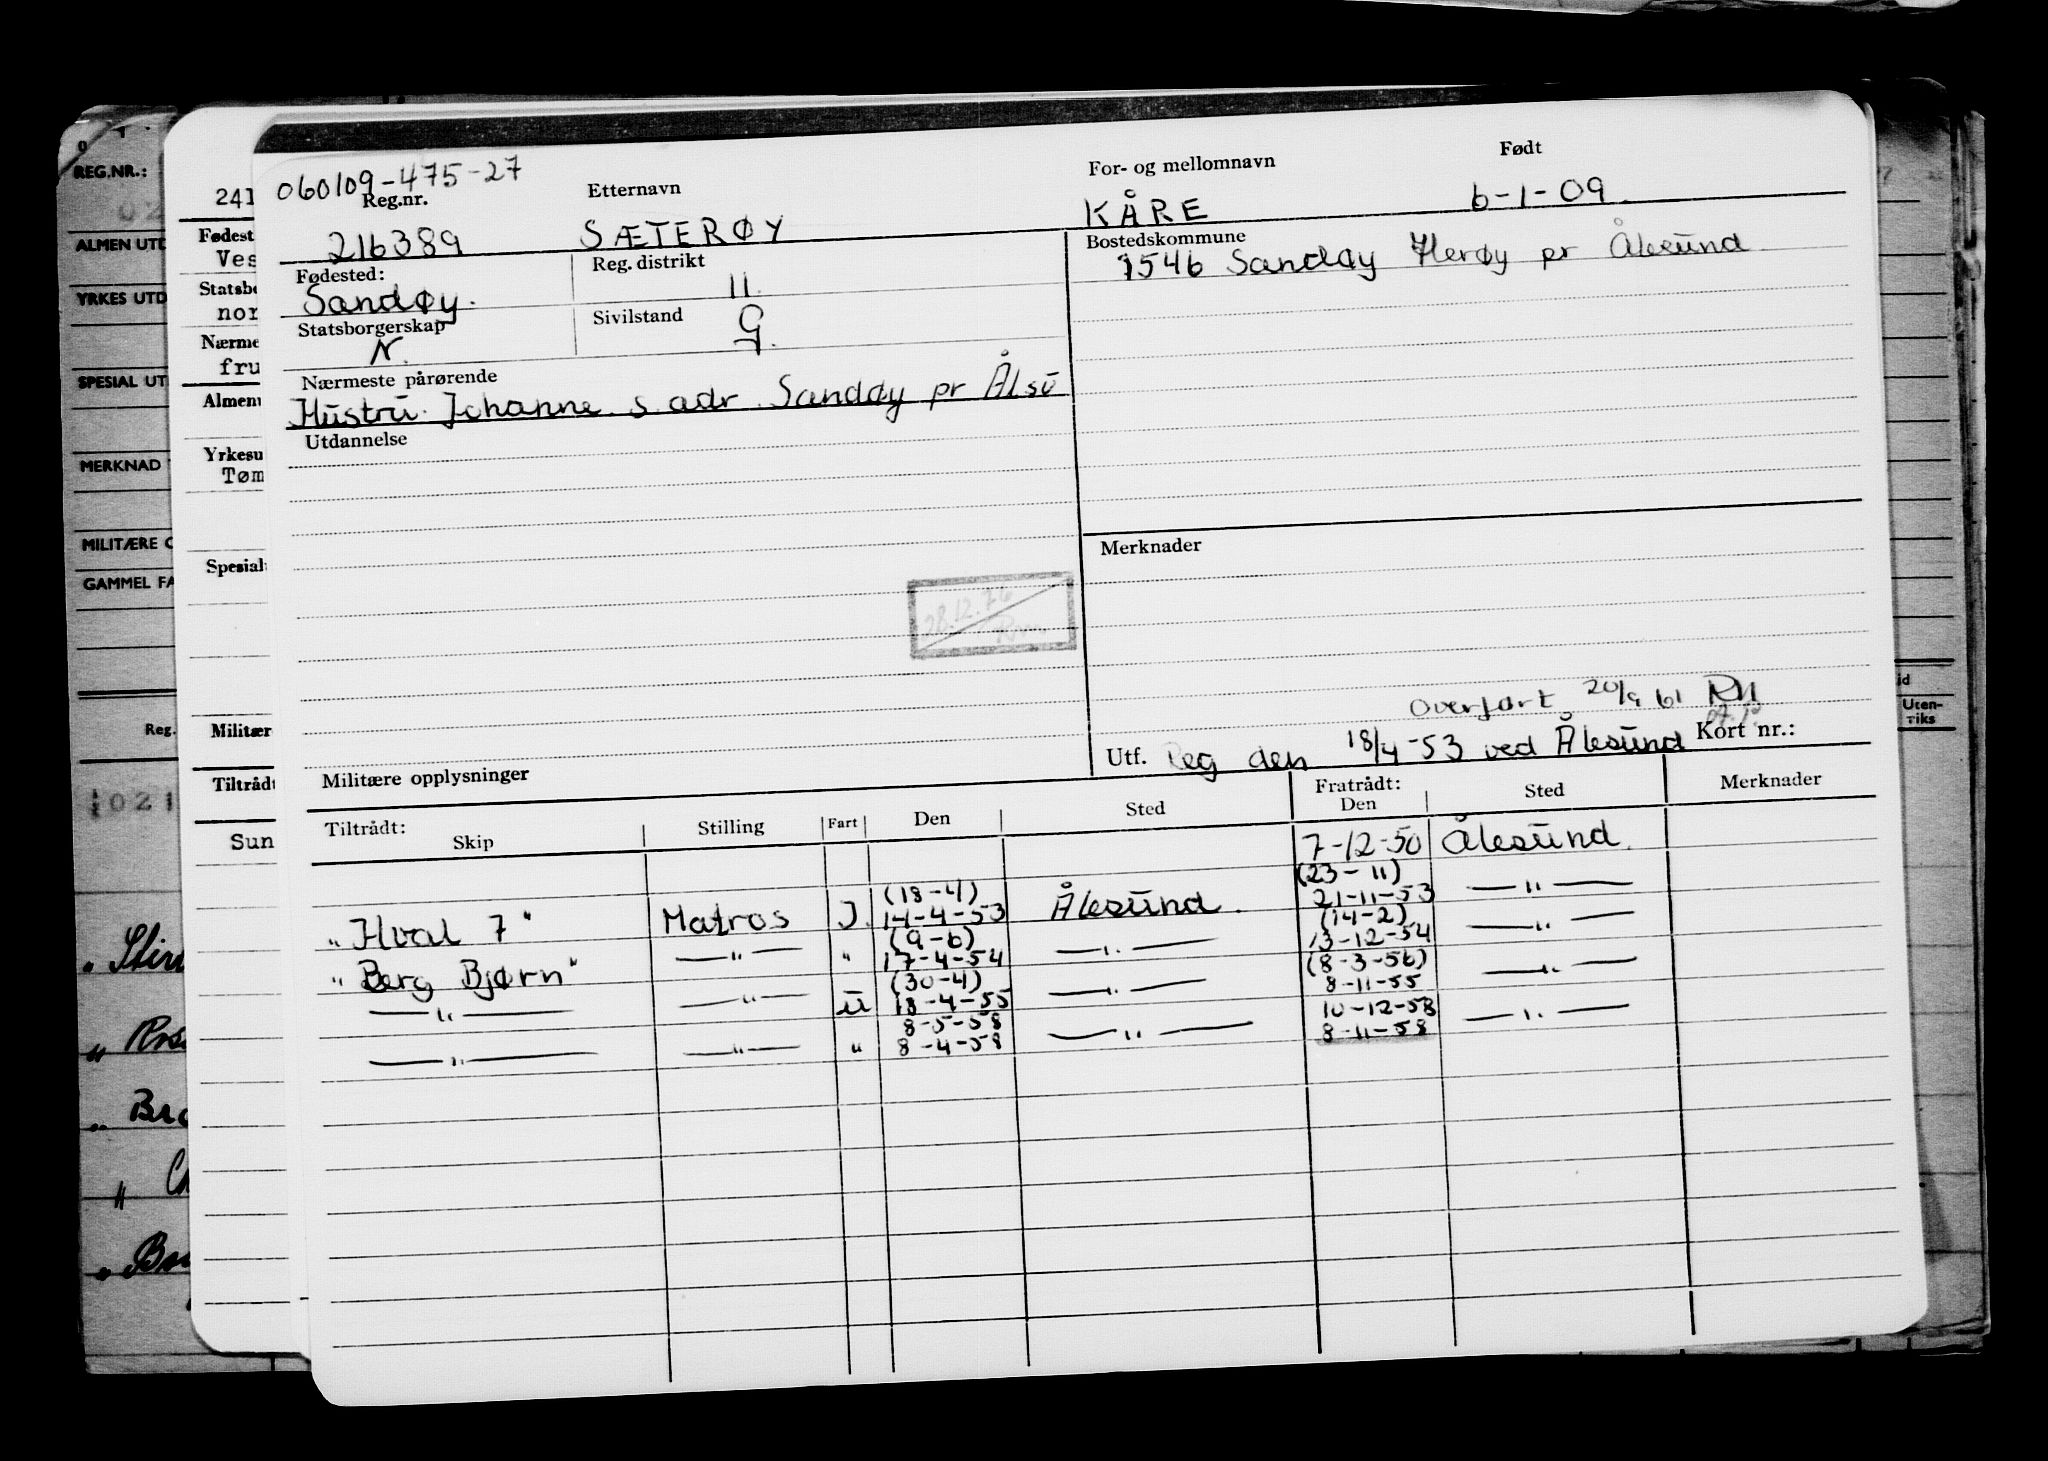 060109-475-27
Reg.nr.
Etternavn
For- og mellomnavn
Født
216389
SÆTERØY
KÅRE
6-1-09.
Fødested:
Reg. distrikt
Bostedskommune
Sandøy.
11.
1546 Sandøy Herøy pr Ålesund
Statsborgerskap
Sivilstand
N.
G.
Nærmeste pårørende
Hustru Johanne s. adr. Sandøy pr Ålsu
Utdannelse
Merknader
28.12.76
Overført 20/9 61 RN
Utf. Reg den 18/4-53 ved Ålesund Kort nr.:
Militære opplysninger
Tiltrådt:
Fratrådt:
Skip Stilling Fart Den Sted Den Sted Merknader
7-12-50 Ålesund.
(18-4) (23-11)
"Hval 7" Matros J. 14-4-53 Ålesund. 21-11-53 —"—
(9-6) (14-2)
"Berg Bjørn" —"— " 17-4-54 —"— 13-12-54 —"—
(30-4) (8-3-56)
—"— —"— U 18-4-55 —"— 8-11-55 —"—
8-5-58 10-12-58
—"— —"— " 8-4-58 —"— 8-11-58 —"—
241
Fødest
Ves
Statsbo
nor
Nærme
fru
Almen
Yrkesu
Tøm
Spesial
Militær
Tiltrådt
Sun
REG.NR.:
02
ALMEN UTD
YRKES UTD
SPESIAL UT
MERKNAD
MILITÆRE O
GAMMEL FA
Reg.
021
id
Uten-
riks